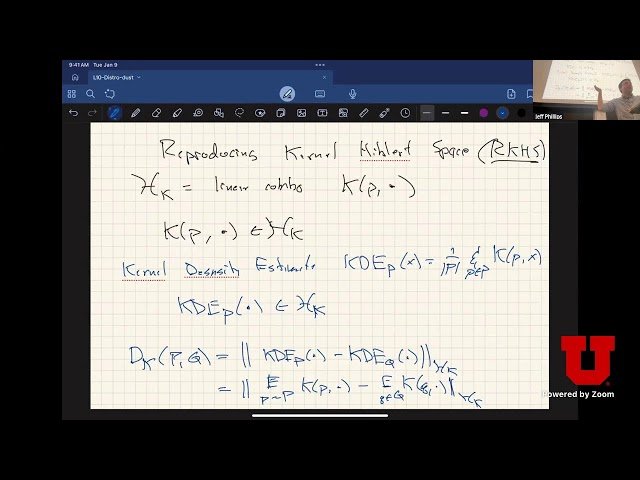 9:41 AM Tue Jan 9
L10-Distro-dust
Jeff Phillips
Reproducing Kernel Hihlert Space (RKHS)
ℋ_K = linear combo K(p, ·)
K(p, ·) ∈ ℋ_K
Kernel Desnsity Estimate KDE_P(x) = 1/|P| Σ_{p∈P} K(p,x)
KDE_P(·) ∈ ℋ_K
D_K(P,Q) = || KDE_P(·) - KDE_Q(·) ||_{ℋ_K}
= || E_{p~P} K(p,·) - E_{q∈Q} K(q,·) ||_{ℋ_K}
U
Powered by Zoom